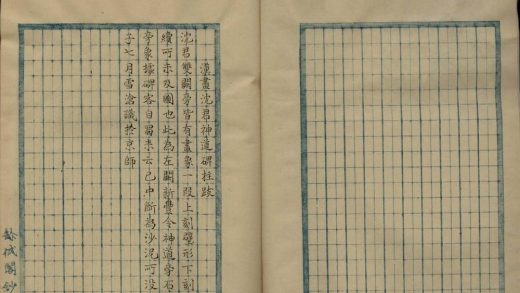 漢畫沈君神道碑柱跋
沈君雙闕旁皆有畫象一段上刻璧形下刻
續可未及圖也此為左闕新豐令神道旁石
旁象據碑客自蜀来云已中斷為沙泥所没
子七月雪滄識於京師
閣鈔